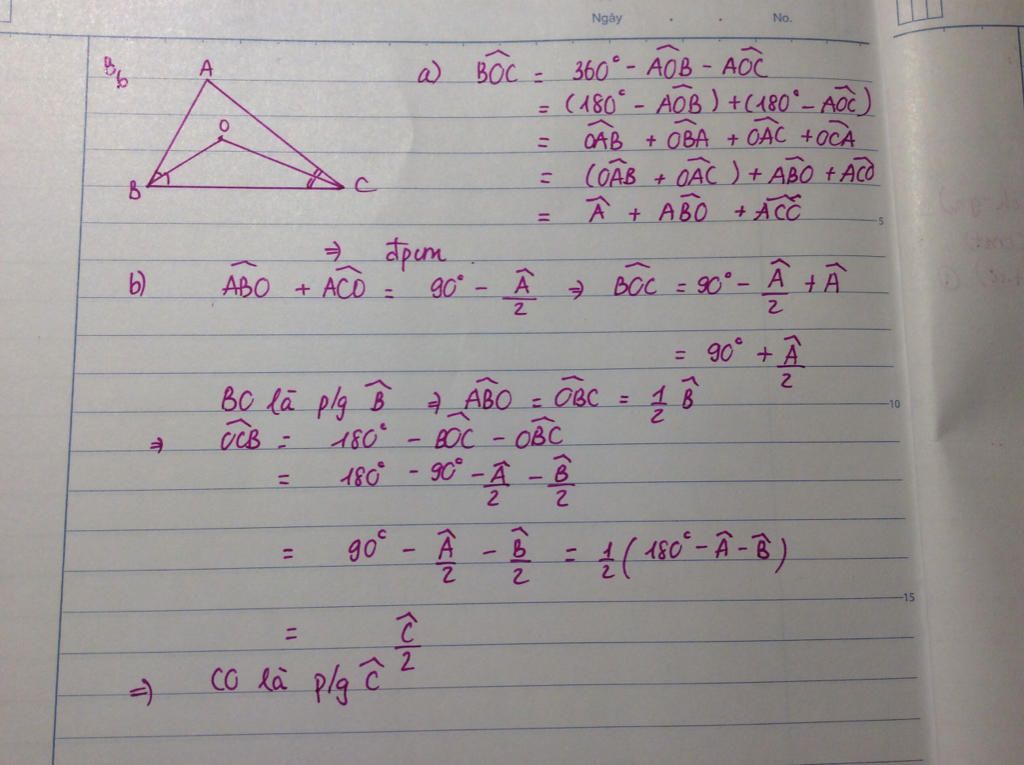 Ngày . . No.
B6
A
O
B
C
a) \widehat{BOC} = 360° - \widehat{AOB} - \widehat{AOC}
= (180° - \widehat{AOB}) + (180° - \widehat{AOC})
= \widehat{OAB} + \widehat{OBA} + \widehat{OAC} + \widehat{OCA}
= (\widehat{OAB} + \widehat{OAC}) + \widehat{ABO} + \widehat{ACO}
= \widehat{A} + \widehat{ABO} + \widehat{ACC}
5
⇒ đpcm.
b) \widehat{ABO} + \widehat{ACO} = 90° - \frac{\widehat{A}}{2} ⇒ \widehat{BOC} = 90° - \frac{\widehat{A}}{2} + \widehat{A}
= 90° + \frac{\widehat{A}}{2}
BO là p/g \widehat{B} ⇒ \widehat{ABO} = \widehat{OBC} = \frac{1}{2} \widehat{B}
10
⇒ \widehat{OCB} = 180° - \widehat{BOC} - \widehat{OBC}
= 180° - 90° - \frac{\widehat{A}}{2} - \frac{\widehat{B}}{2}
= 90° - \frac{\widehat{A}}{2} - \frac{\widehat{B}}{2} = \frac{1}{2}(180° - \widehat{A} - \widehat{B})
15
= \frac{\widehat{C}}{2}
⇒ CO là p/g \widehat{C}